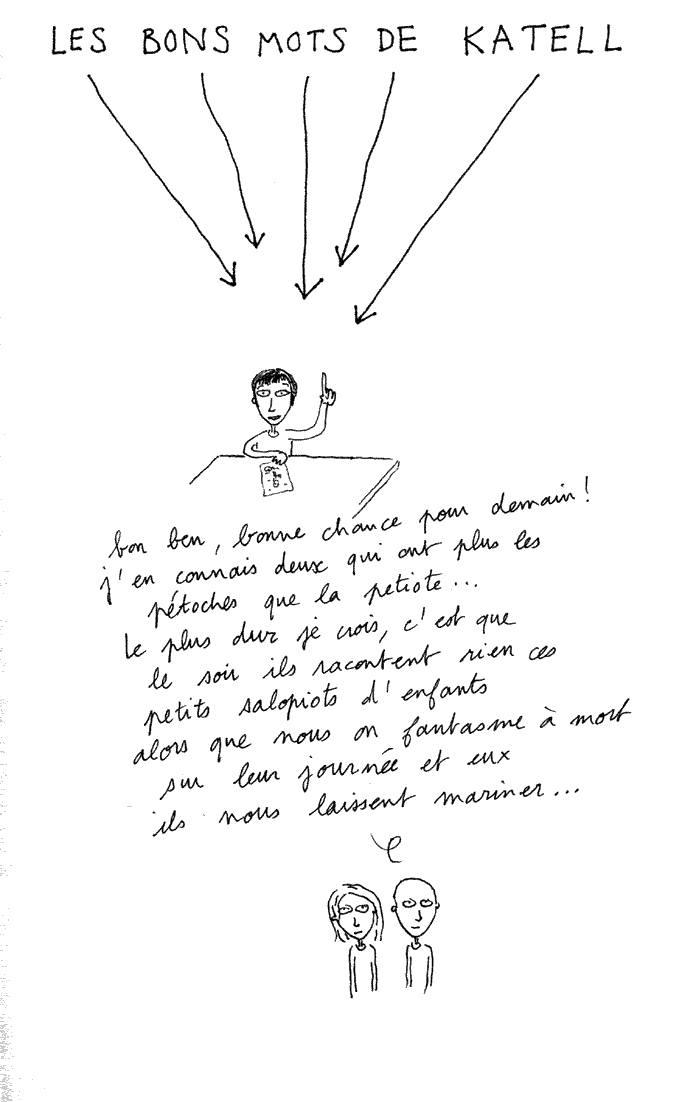 LES BONS MOTS DE KATELL
bon ben, bonne chance pour demain!
j'en connais deux qui ont plus les
pétoches que la petiote...
Le plus dur je crois, c'est que
le soir ils racontent rien ces
petits salopiots d'enfants
alors que nous on fantasme à mort
sur leur journée et eux
ils nous laissent mariner...